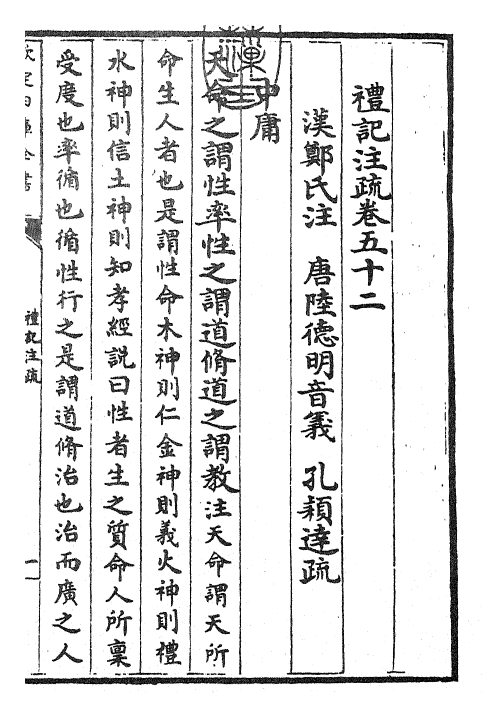 禮記注疏卷五十二
漢鄭氏注 唐陸德明音義 孔穎達疏
中庸
天命之謂性率性之謂道脩道之謂教注天命謂天所
命生人者也是謂性命木神則仁金神則義火神則禮
水神則信土神則知孝經說曰性者生之質命人所稟
受度也率循也循性行之是謂道脩治也治而廣之人
欽定四庫全書
禮記注疏
一